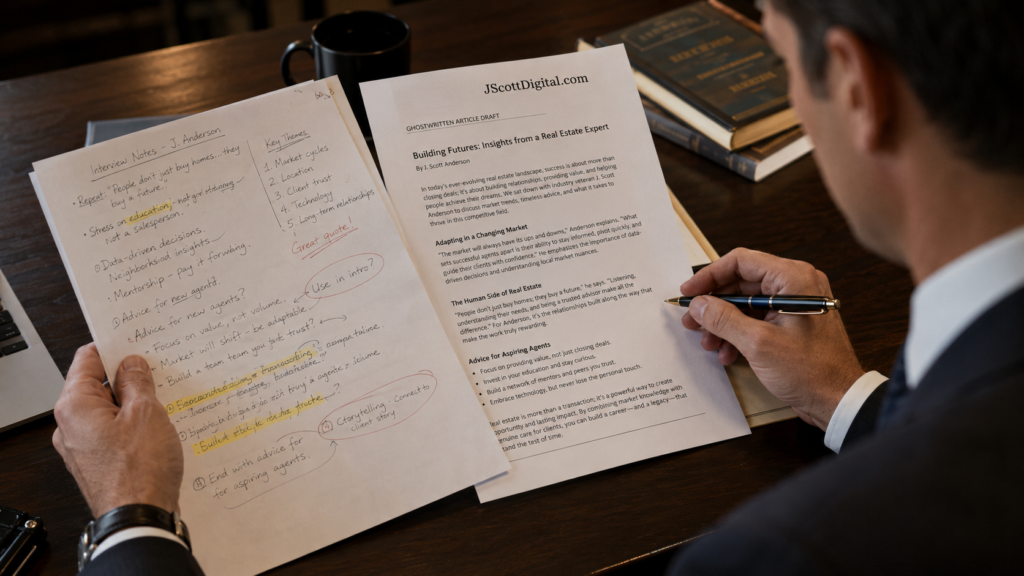 Interview Notes - J. Anderson
• Repeat: "People don't just buy homes... they
buy a future."
• Stress on education, not
not a salesperson.
Data-driven decisions.
Neighborhood insights
Mentorship - pay it forward.
Advice for new agents.
• Advice for new agents?
• Focus on value, not volume.
• Market will shift - be adaptable
• Build a team you trust?
End with advice for
for aspiring agents.
Key Themes:
1. Market cycles
2. Location
3. Client trust
4. Technology
5. Long-term relationships
Great quote!
Use in intro?
Connect to
client story
JScottDigital.com
GHOSTWRITTEN ARTICLE DRAFT
Building Futures: Insights from a Real Estate Expert
By J. Scott Anderson
In today's ever-evolving real estate landscape, success is about more than
closing deals; it's about building relationships, providing value, and helping
people achieve their dreams. We sat down with industry veteran J. Scott
Anderson to discuss market trends, timeless advice, and what it takes to
thrive in this competitive field.
Adapting in a Changing Market
"The market will always have its ups and downs," Anderson explains. "What
sets successful agents apart is their ability to stay informed, pivot quickly, and
guide their clients with confidence." He emphasizes the importance of data-
driven decisions and understanding local market nuances.
The Human Side of Real Estate
"People don't just buy homes; they buy a future," he says. "Listening,
understanding their needs, and being a trusted advisor make all the
difference." For Anderson, it's the relationships built along the way that
make the work truly rewarding.
Advice for Aspiring Agents
• Focus on providing value, not just closing deals.
• Invest in your education and stay curious.
• Build a network of mentors and peers you trust.
• Embrace technology, but never lose the personal touch.
eal estate is more than a transaction, it's a powerful way to create
pportunity and lasting impact. By combining market knowledge with
enuine care for clients, you can build a career—and a legacy—that
and the test of time.